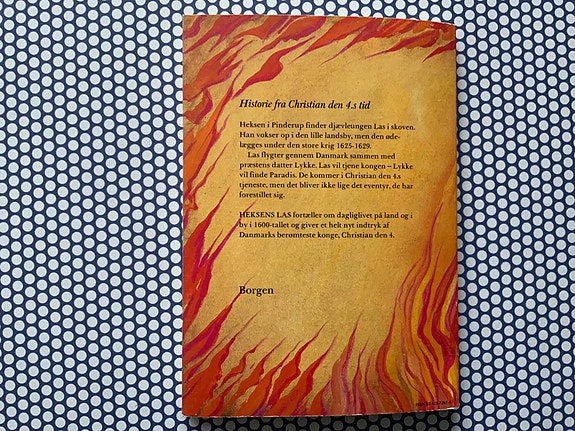 Historie fra Christian den 4.s tid
Heksen i Pinderup finder djævleungen Las i skoven.
Han vokser op i den lille landsby, men den øde-
lægges under den store krig 1625-1629.
Las flygter gennem Danmark sammen med
præstens datter Lykke. Las vil tjene kongen – Lykke
vil finde Paradis. De kommer i Christian den 4.s
tjeneste, men det bliver ikke lige det eventyr, de har
forestillet sig.
HEKSENS LAS fortæller om dagliglivet på land og i
by i 1600-tallet og giver et helt nyt indtryk af
Danmarks berømteste konge, Christian den 4.
Borgen
ISBN